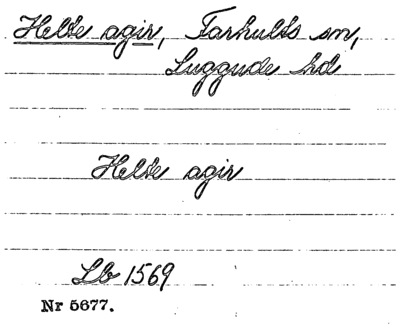 Helse agir, Farhults sn,
Luggude hd
Helse agir
Lb 1569
Nr 5677.